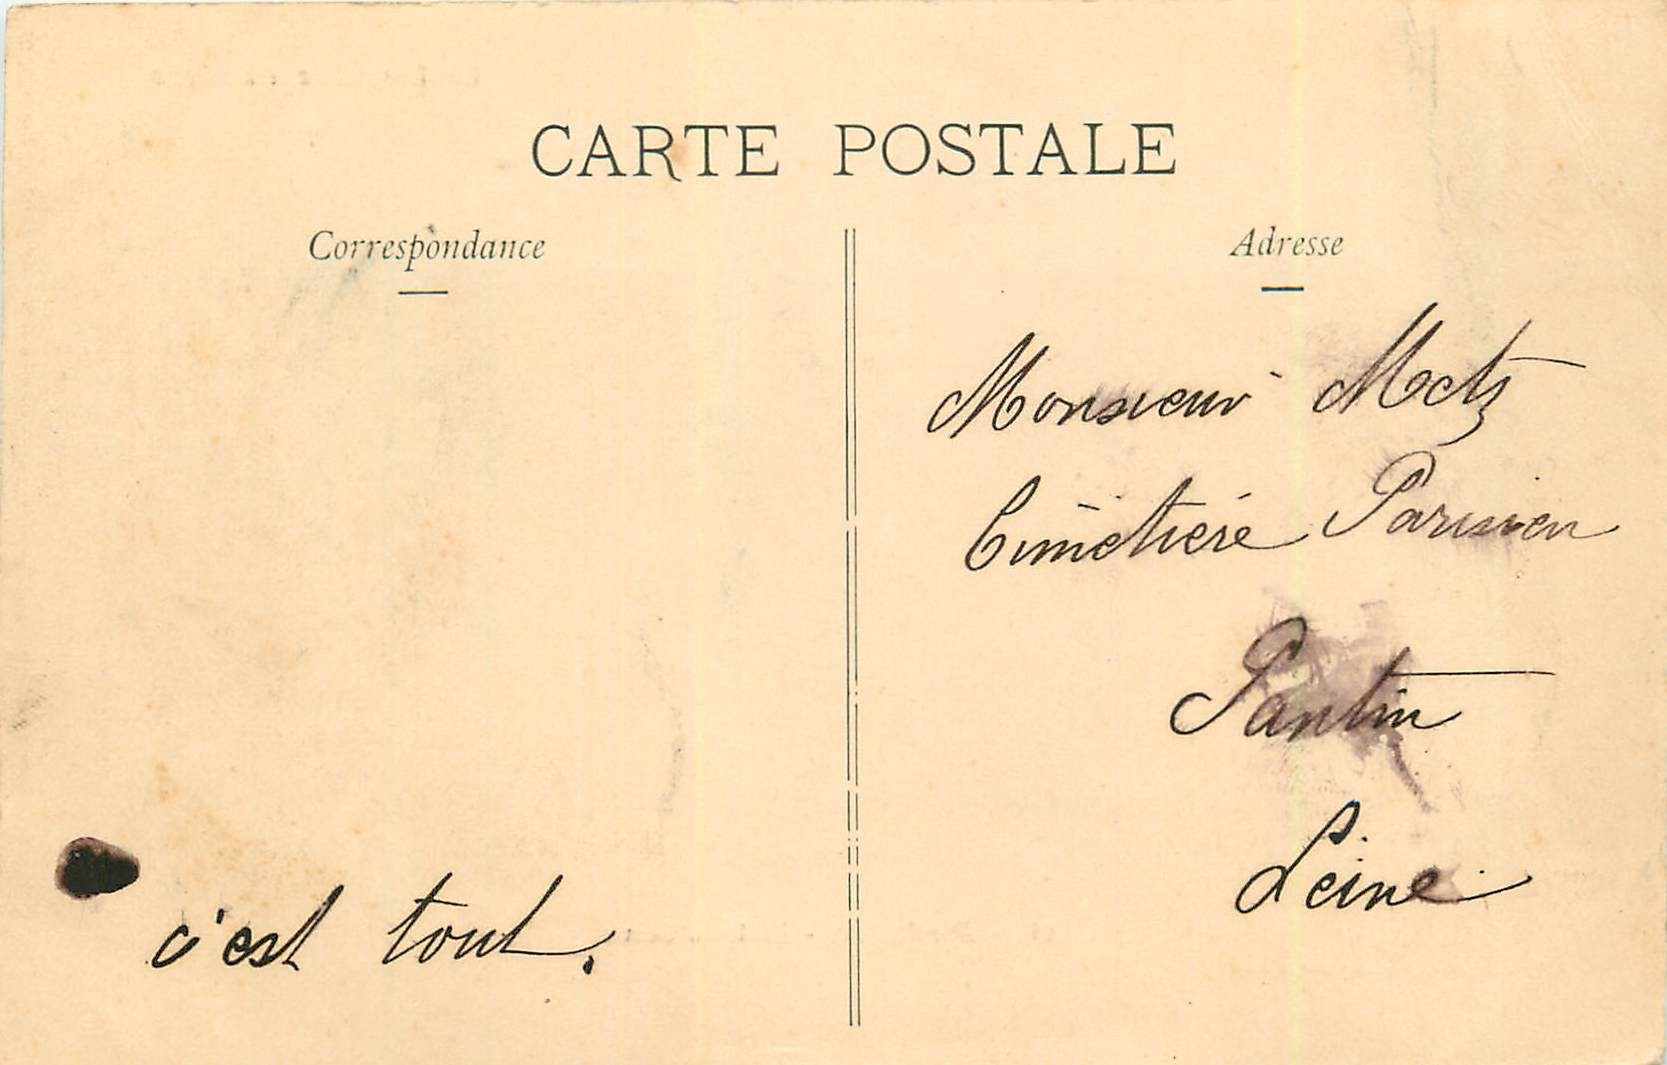 CARTE POSTALE
Correspondance
c'est tout.
Adresse
Monsieur Metz
Cimetière Parisien
Pantin
Seine